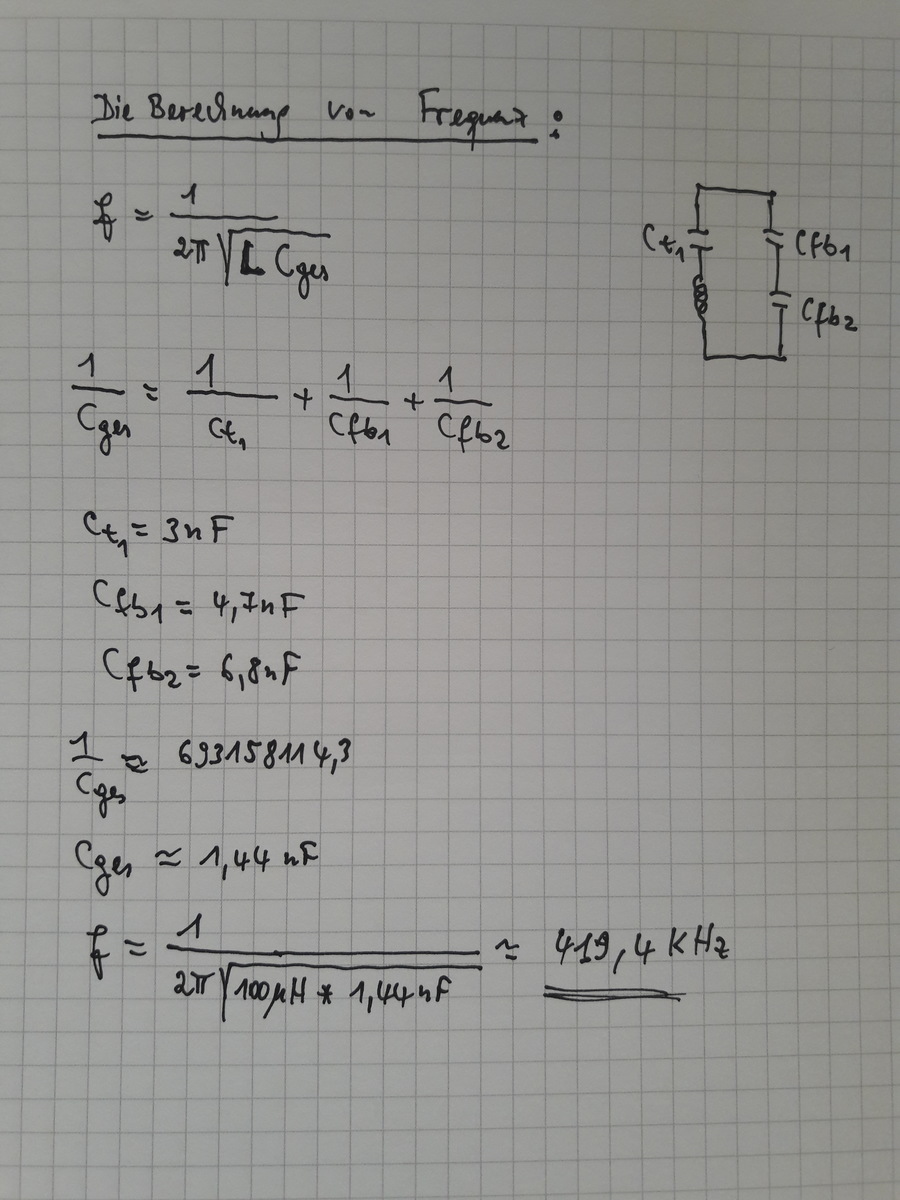 Die Berechnung von Frequenz :
f = 1 / 2π√(L Cges)
Ct1
Cfb1
Cfb2
1/Cges = 1/Ct1 + 1/Cfb1 + 1/Cfb2
Ct1 = 3nF
Cfb1 = 4,7nF
Cfb2 = 6,8nF
1/Cges ≈ 693158114,3
Cges ≈ 1,44 nF
f = 1 / 2π√(100µH * 1,44nF) ≈ 419,4 KHz